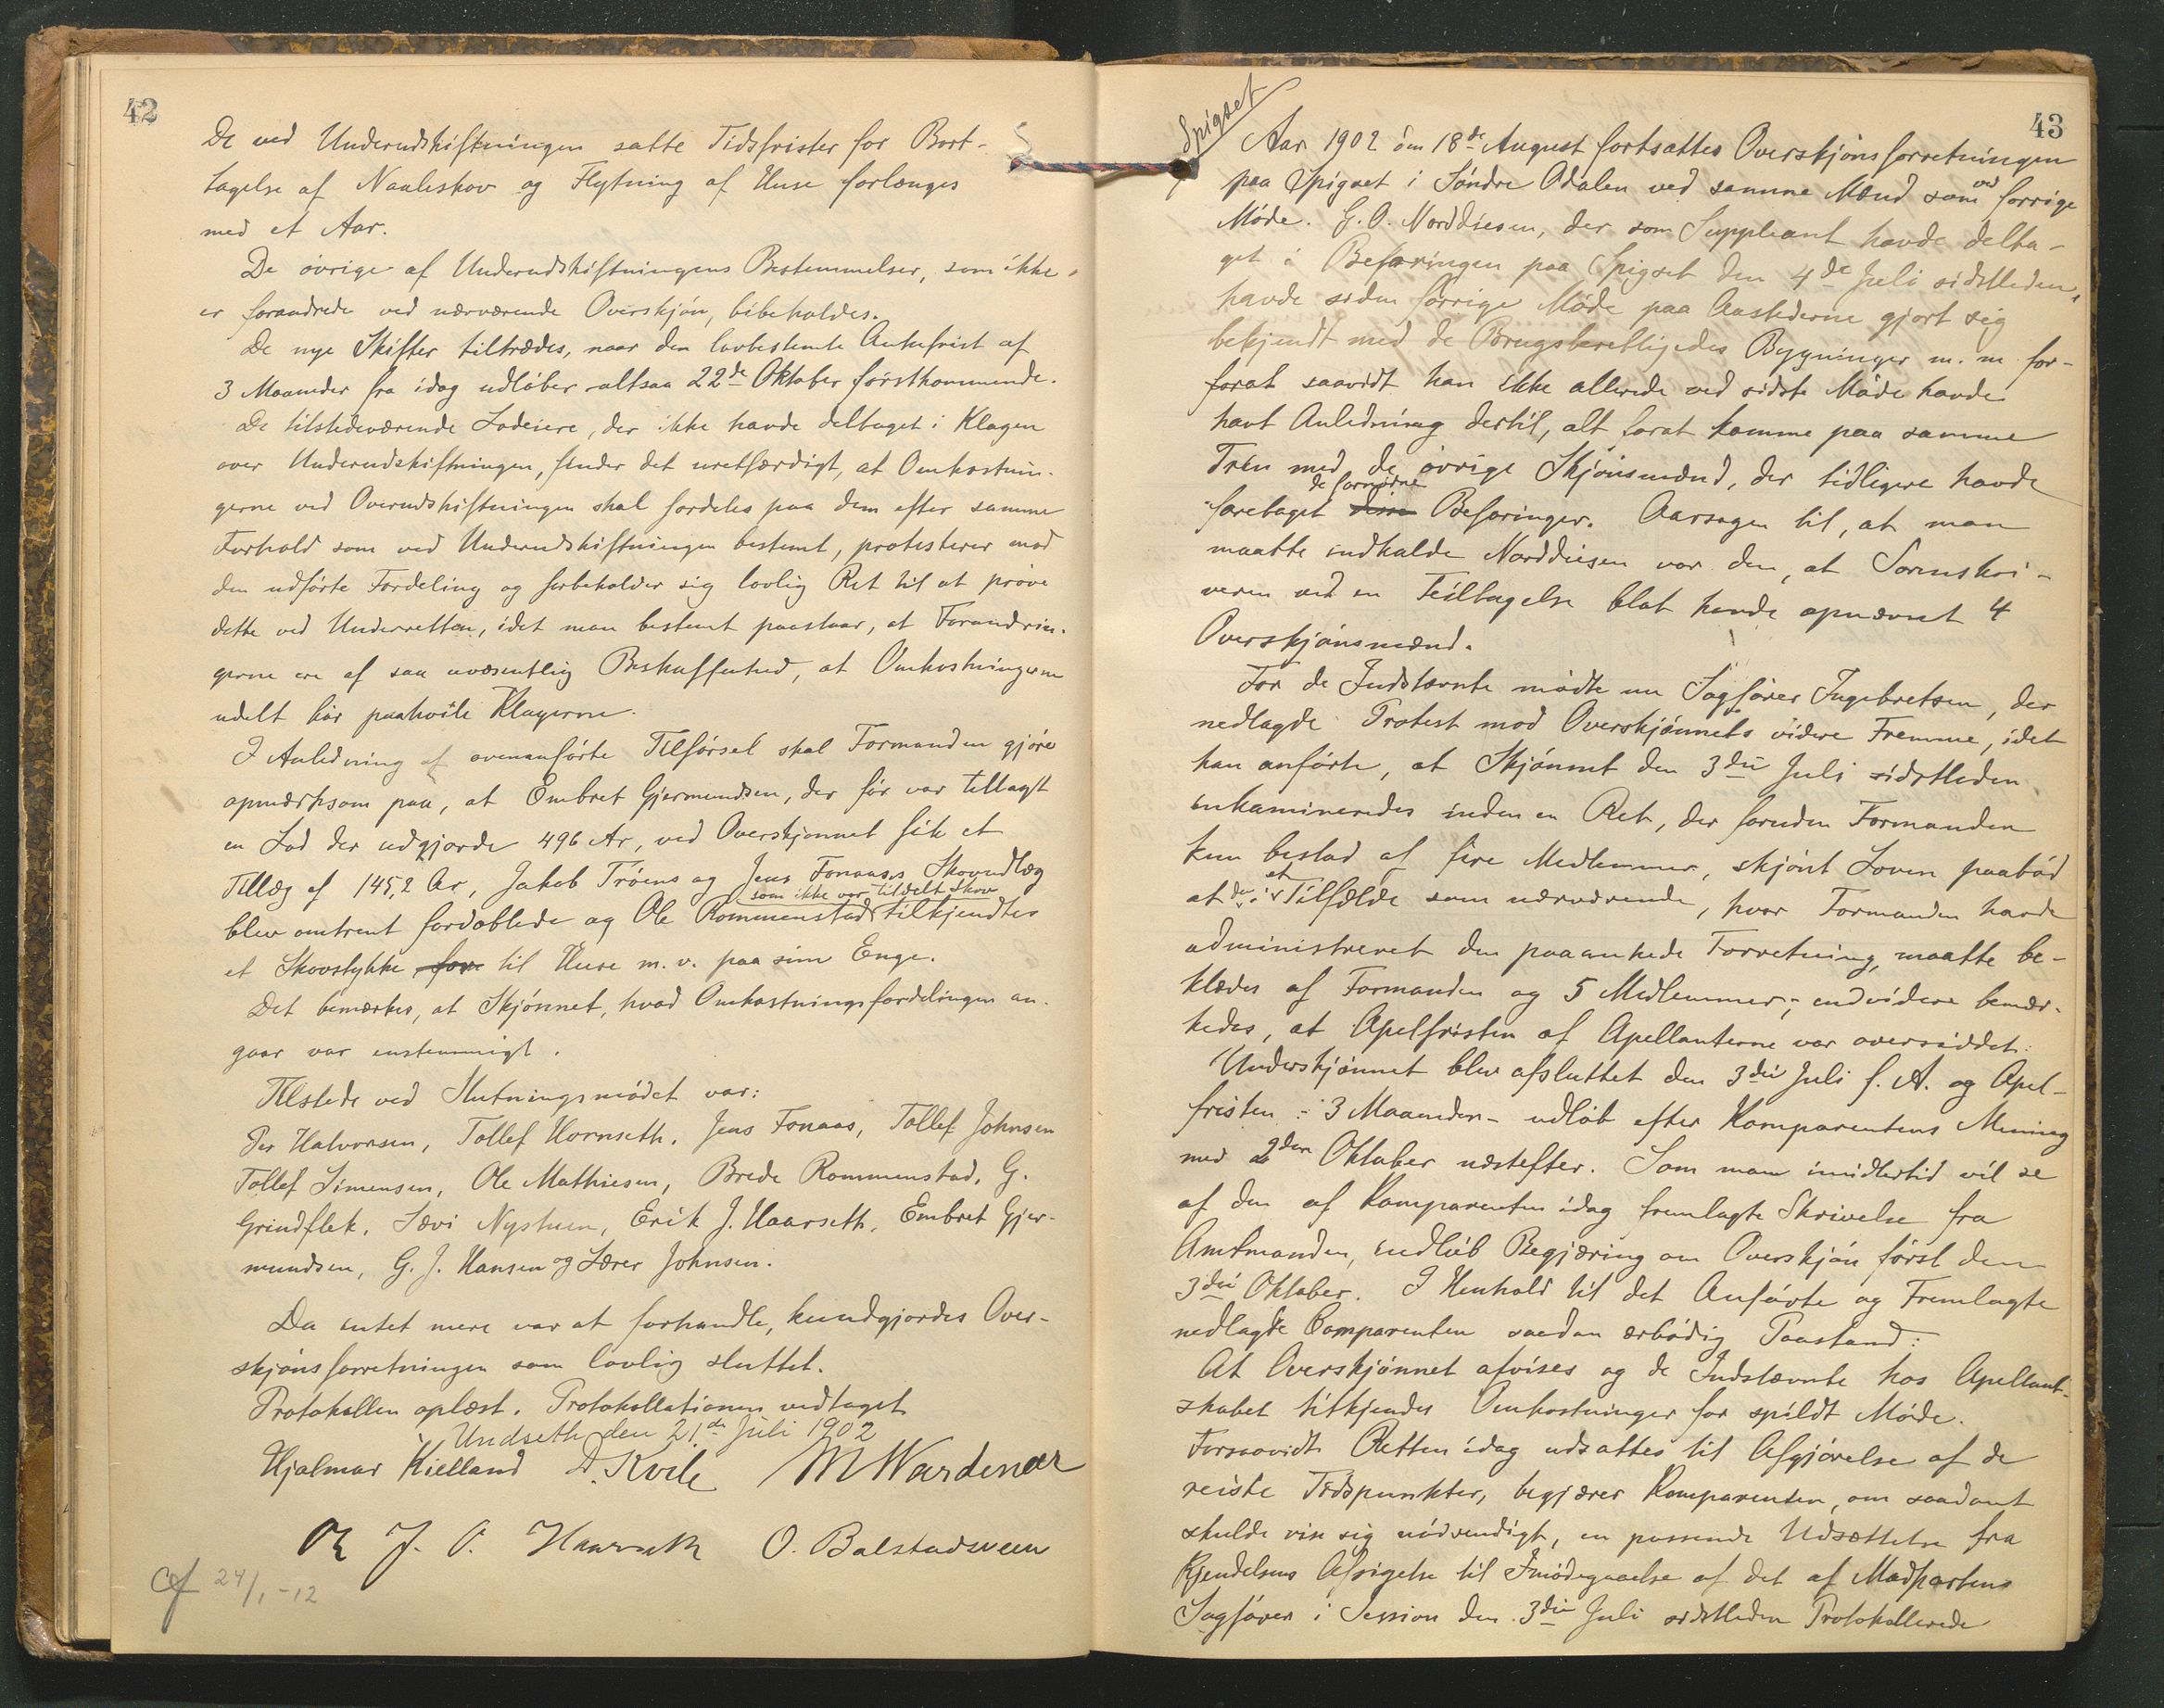 42
De ved Underudskiftningen satte Tidsfrister for Bort-
tagelse af Naaleskov og Flytning af Huse forlænges
med et Aar.
De øvrige af Underudskiftningens Bestemmelser, som ikke
er forandrede ved nærværende Overskjøn, bibeholdes.
De nye Skifter tiltrædes, naar den lovbestemte Ankefrist af
3 Maaneder fra idag udløber altsaa 22de Oktober førstkommende.
De tilstedeværende Lodeiere, der ikke havde deltaget i Klagen
over Underudskiftningen, finder det uretfærdigt, at Omkostnin-
gerne ved Overudskiftningen skal fordeles paa dem efter samme
Forhold som ved Underudskiftningen bestemt, protesterer mod
den udførte Fordeling og forbeholder sig lovlig Ret til at prøve
dette ved Underretten, idet man bestemt paastaar, at Forandrin-
gerne ere af saa uvæsentlig Beskaffenhed, at Omkostningerne
udelt bør paahvile Klagerne.
I Anledning af ovenanførte Tilførsel skal Formanden gjøre
opmærksom paa, at Embret Gjermundsen, der før var tillagt
en Lod der udgjorde 496 Ar, ved Overskjønnet fik et
Tillæg af 145,2 Ar, Jakob Trøens og Jens Fonaases Skovudlæg
som ikke var tildelt Skov
blev omtrent fordoblede og Ole Rommenstad tilkjendtes
et Skovstykke til Huse m. v. paa sine Enge.
Det bemærkes, at Skjønnet, hvad Omkostningsfordelingen an-
gaar var enstemmigt.
Tilstede ved Slutningsmødet var:
Per Halvorsen, Tollef Hornseth, Jens Fonaas, Tollef Johnsen
Tollef Simensen, Ole Mathiesen, Brede Rommenstad, G.
Grindflek, Sævi Nystuen, Erik J. Haarseth, Embret Gjer-
mundsen, G. J. Hansen og Lærer Johnsen.
Da intet mere var at forhandle, kundgjordes Over-
skjønsforretningen som lovlig sluttet.
Protokollen oplæst. Protokollationen vedtaget
Undseth den 21.de Juli 1902
Hjalmar Kielland D. Kvile M Wardenær
J. O. Haarseth O. Bolstadsveen
24/1 -12
Spigset
43
Aar 1902 den 18de August fortsattes Overskjønsforretningen
paa Spigset i Søndre Odalen ved samme Mænd som ved forrige
Møde. G. O. Norddiesen, der som Suppleant havde delta-
get i Befaringen paa Spigset den 4de Juli sidstleden,
havde siden forrige Møde paa Aastederne gjort sig
bekjendt med de Brugsberettigedes Bygninger m. m for-
forat saavidt han ikke allerede ved sidste Møde havde
havt Anledning dertil, alt forat komme paa samme
Trin med de øvrige Skjønsmænd, der tidligere havde
de fornødne
foretaget disse Befaringer. Aarsagen til, at man
maatte indkalde Norddiesen var den, at Sorenskri-
veren ved en Feiltagelse blot havde opnævnt 4
Overskjønsmænd.
For de Indstævnte mødte nu Sagfører Ingebretsen, der
nedlagde Protest mod Overskjønnets videre Fremme, idet
han anførte, at Skjønnet den 3die Juli sidstleden
inkamineredes inden en Ret, der foruden Formanden
kun bestod af fire Medlemmer, skjønt Loven paabød
at der i et Tilfælde som nærværende, hvor Formanden havde
administreret den paaankede Forretning, maatte be-
klædes af Formanden og 5 Medlemmer; endvidere bemær-
kedes, at Apelfristen af Apellanterne var oversiddet:
Underskjønnet blev afsluttet den 3die Juli f. A. og Apel-
fristen : 3 Maaneder - udløb efter Komparentens Mening
med 2den Oktober næstefter. Som man imidlertid vil se
af den af Komparenten idag fremlagte Skrivelse fra
Amtmanden, indløb Begjæring om Overskjøn først den
3die Oktober. I Henhold til det Anførte og Fremlagte
nedlagde Comparenten saadan ærbødig Paastand:
At Overskjønnet afvises og de Indstævnte hos Apellant-
skabet tilkjendes Omkostninger for spildt Møde.
Forsaavidt Retten idag udsattes til Afgjørelse af de
reiste Tvistpunkter, begjærer Komparenten, om saadant
skulde vise sig nødvendigt, en passende Udsættelse fra
Kjendelsens Afsigelse til Imødegaaelse af det af Modpartens
Sagfører i Session den 3die Juli sidstleden Protokollerede